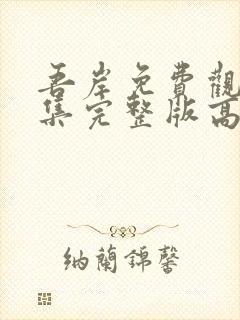 吾岸免費觀
集完整版高
納蘭錦馨